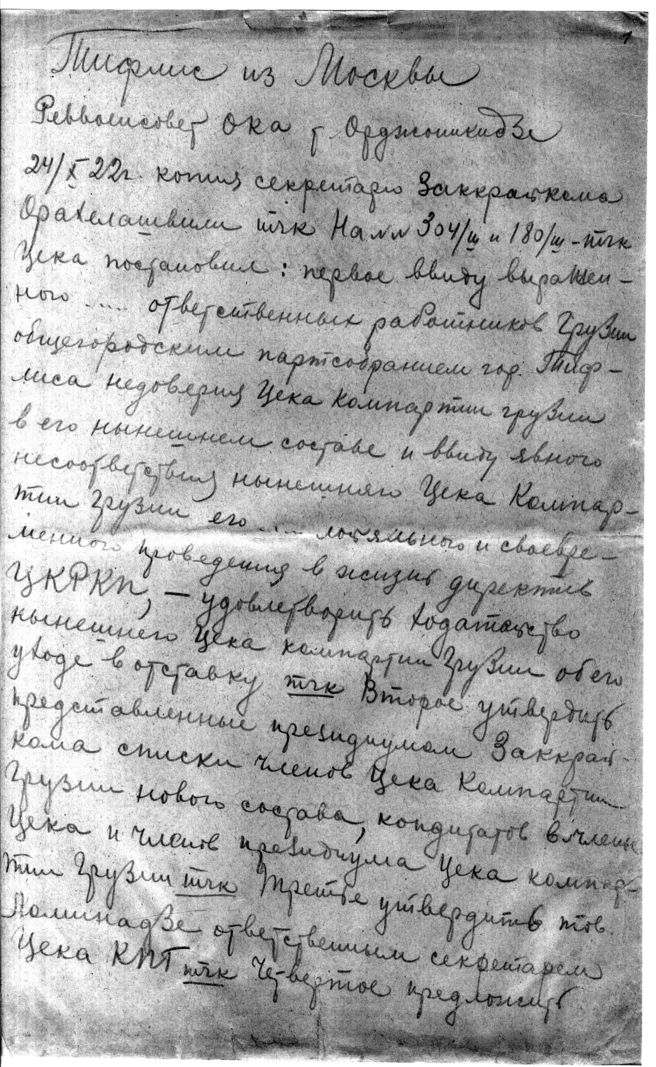 1
Тифлис из Москвы
Реввоенсовет ОКА т Орджоникидзе
24/X 22г. копия секретарю Заккрайкома
Орахелашвили тчк На NN 304/ш и 180/ш - тчк
Цека постановил: первое ввиду выражен-
ного ..... ответственных работников Грузии
общегородским партсобранием гор. Тиф-
лиса недоверия Цека Компартии Грузии
в его нынешнем составе и ввиду явного
несоответствия нынешняго Цека Компар-
тии Грузии его .... лояльного и своевре-
менного проведения в жизнь директив
ЦКРКП, — удовлетворить ходатайство
нынешнего Цека компартии Грузии об его
уходе в отставку тчк Второе утвердить
представленные президиумом Заккрай-
кома списки членов Цека Компартии
Грузии нового состава, кондитатов в члены
Цека и членов президиума Цека компар-
тии Грузии тчк Третье утвердить тов.
Ломинадзе ответственным секретарем
Цека КПГ тчк Четвертое предложить